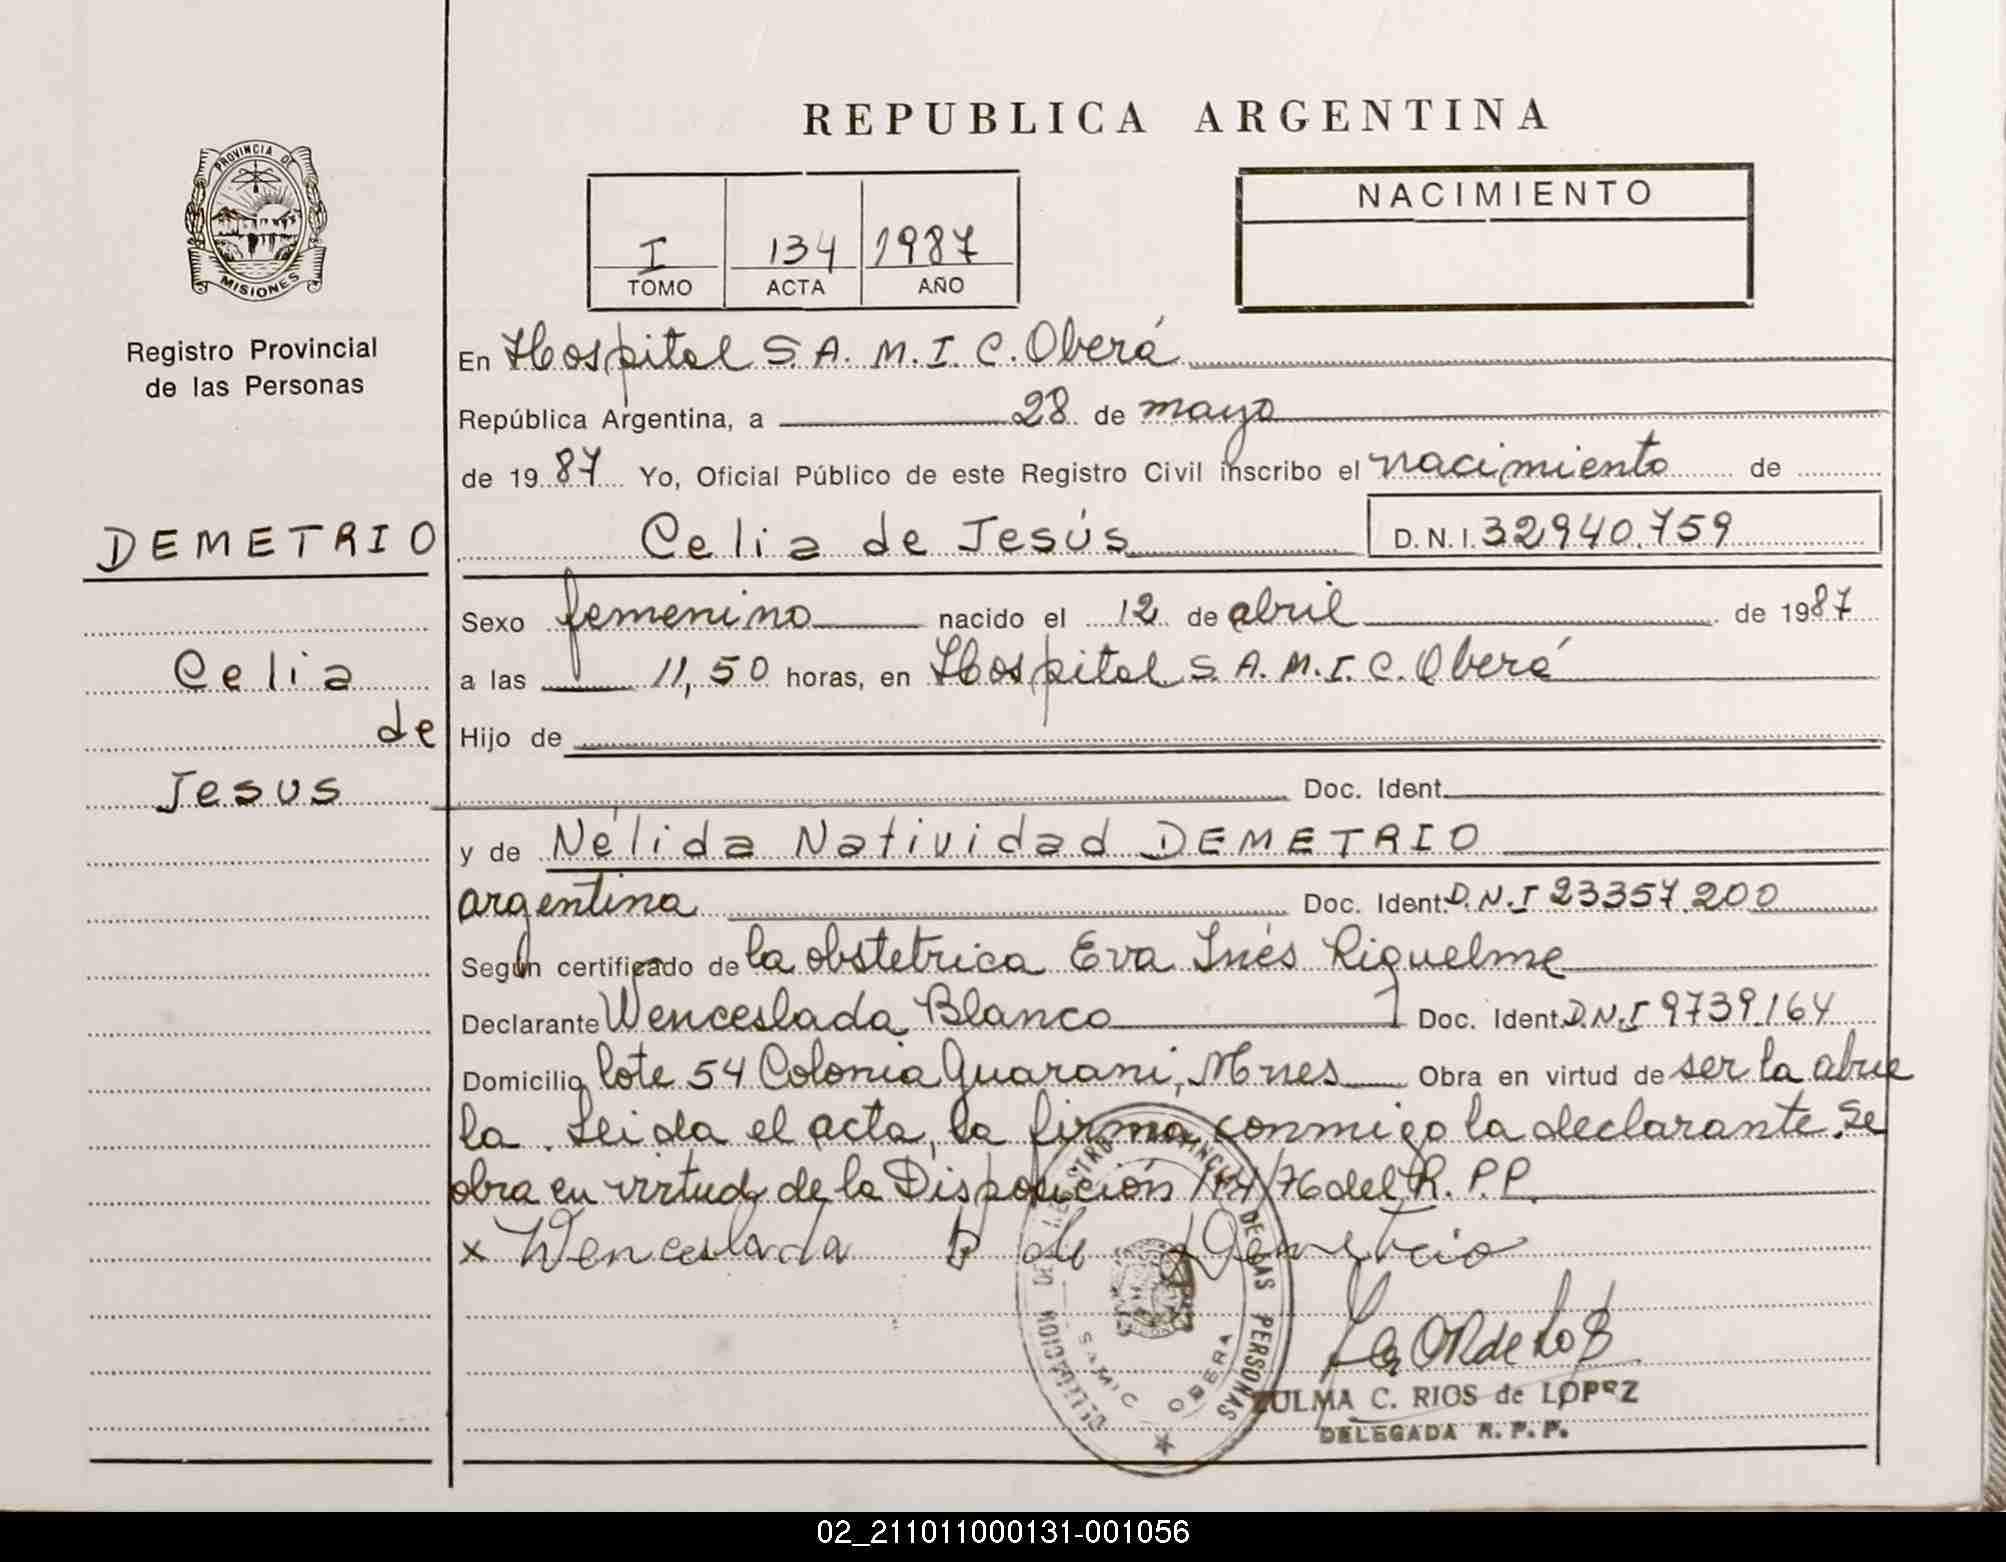 REPUBLICA ARGENTINA
PROVINCIA DE
MISIONES
Registro Provincial
de las Personas
I 134 1987
TOMO ACTA AÑO
NACIMIENTO
En Hospital S.A.M.I.C. Oberá
República Argentina, a 28 de mayo
de 1987 Yo, Oficial Público de este Registro Civil inscribo el nacimiento de
Celia de Jesús D.N.I. 32940.759
DEMETRIO
Celia
de
Jesus
Sexo femenino nacido el 12 de abril de 1987
a las 11,50 horas, en Hospital S.A.M.I.C. Oberá
Hijo de
Doc. Ident.
y de Nélida Natividad DEMETRIO
argentina Doc. Ident. D.N.I 23357.200
Según certificado de la obstetrica Eva Inés Riquelme
Declarante Wenceslada Blanco Doc. Ident. D.N.I 9739.164
Domicilio lote 54 Colonia Guarani, Mnes Obra en virtud de ser la abue
la. Leida el acta, la firma conmigo la declarante. Se
obra en virtud de la Disposición 114/76 del R.P.P.
x Wenceslada B de Demetrio
DELEGACION DEL REGISTRO PROVINCIAL DE LAS PERSONAS
SAMIC OBERA
ZULMA C. RIOS de LOPEZ
DELEGADA R.P.P.
02_211011000131-001056